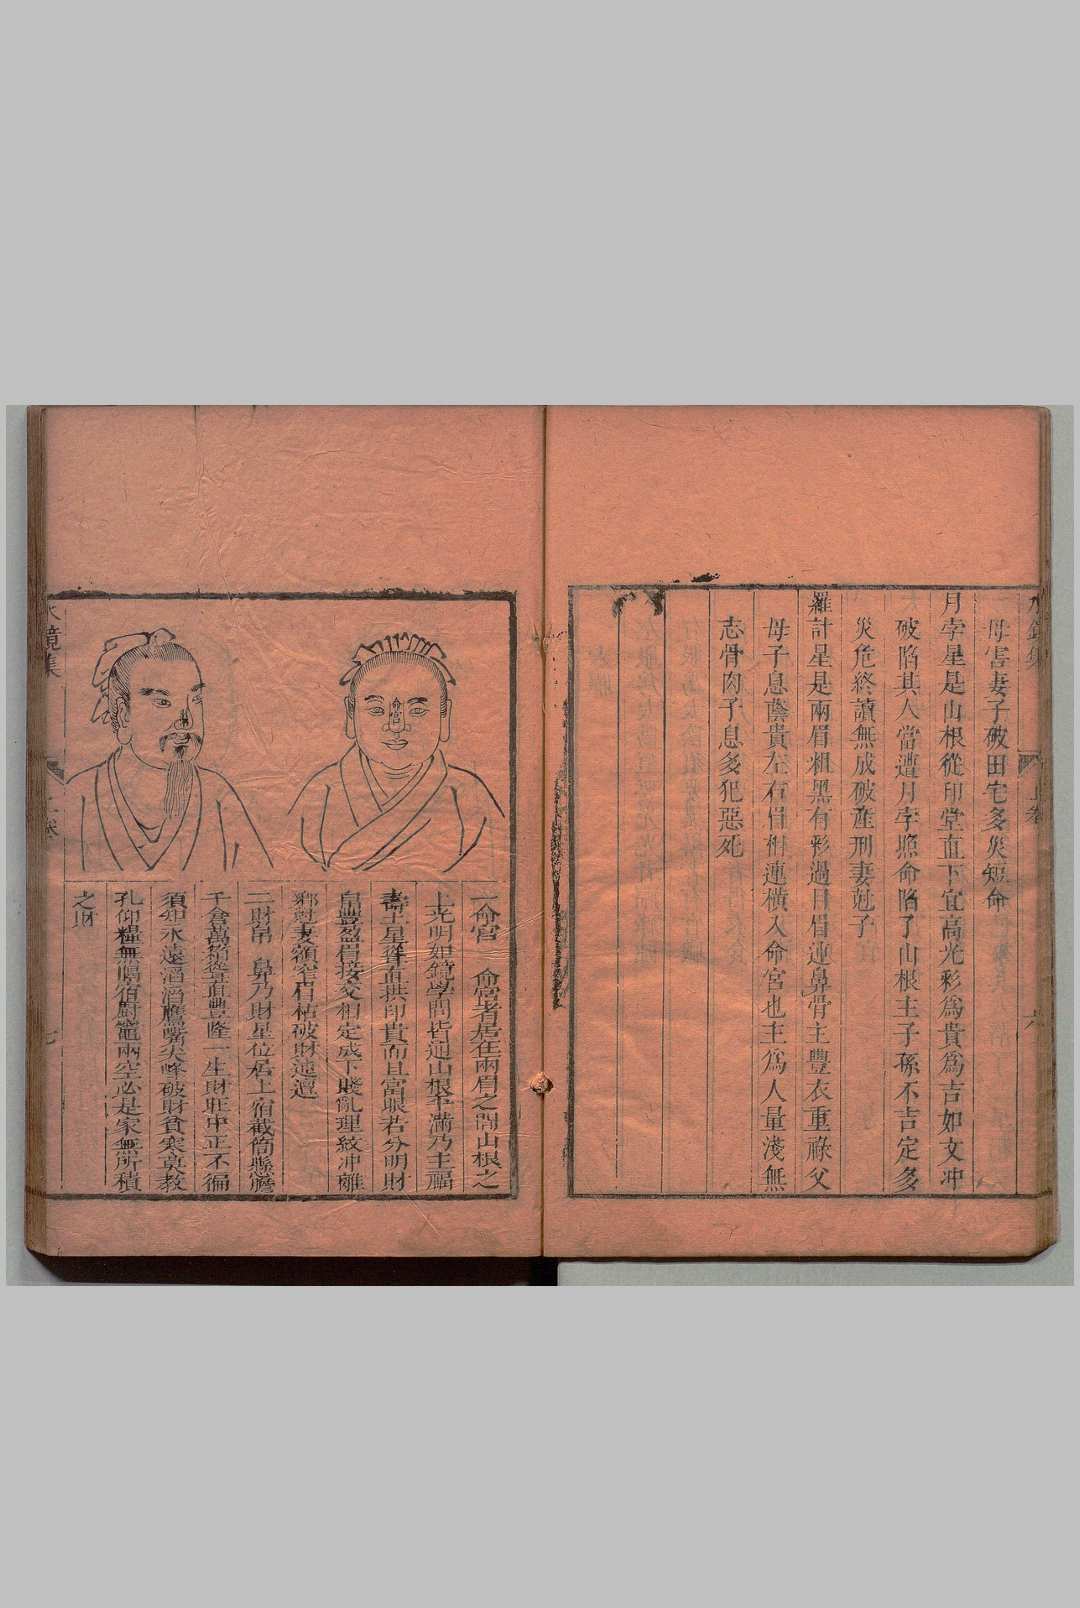 母害妻子破田宅多災短命
月孛星是山根從印堂直下宜高光彩為貴為吉如文冲
破陷其人當遭月孛照命陷了山根主子孫不吉定多
災危終讀無成破產刑妻尅子
羅計星是兩眉粗黑有彩過目眉連鼻骨主豐衣重祿父
母子息蔭貴左右眉相連橫入命宮也主為人量淺無
志骨肉子息多犯惡死
水鏡集
上卷
六
命宮
一命宮 命宮者居住兩眉之間山根之
上光明如鏡學問皆通山根平滿乃主福
壽土星聳直拱印貴而且富眼若分明財
帛豐盈眉接交相定成下賤亂理紋冲離
鄉尅妻額窄眉枯破財迍邅
二財帛 鼻乃財星位居土宿截筒懸膽
千倉萬箱聳直豐隆一生財旺中正不偏
須知永遠滔滔鷹嘴尖峰破財貧寒莫教
孔仰糧無隔宿厨竈兩空必是家無所積
之財
水鏡集
上卷
七